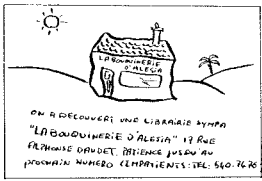 LA BOUQUINERIE
D'ALESIA
ON A DECOUVERT UNE LIBRAIRIE SYMPA
"LA BOUQUINERIE D'ALESIA" 17 RUE
ALPHONSE DAUDET. PATIENCE JUSQU'AU
PROCHAIN NUMERO IMPATIENTS: TEL: 540.76.76